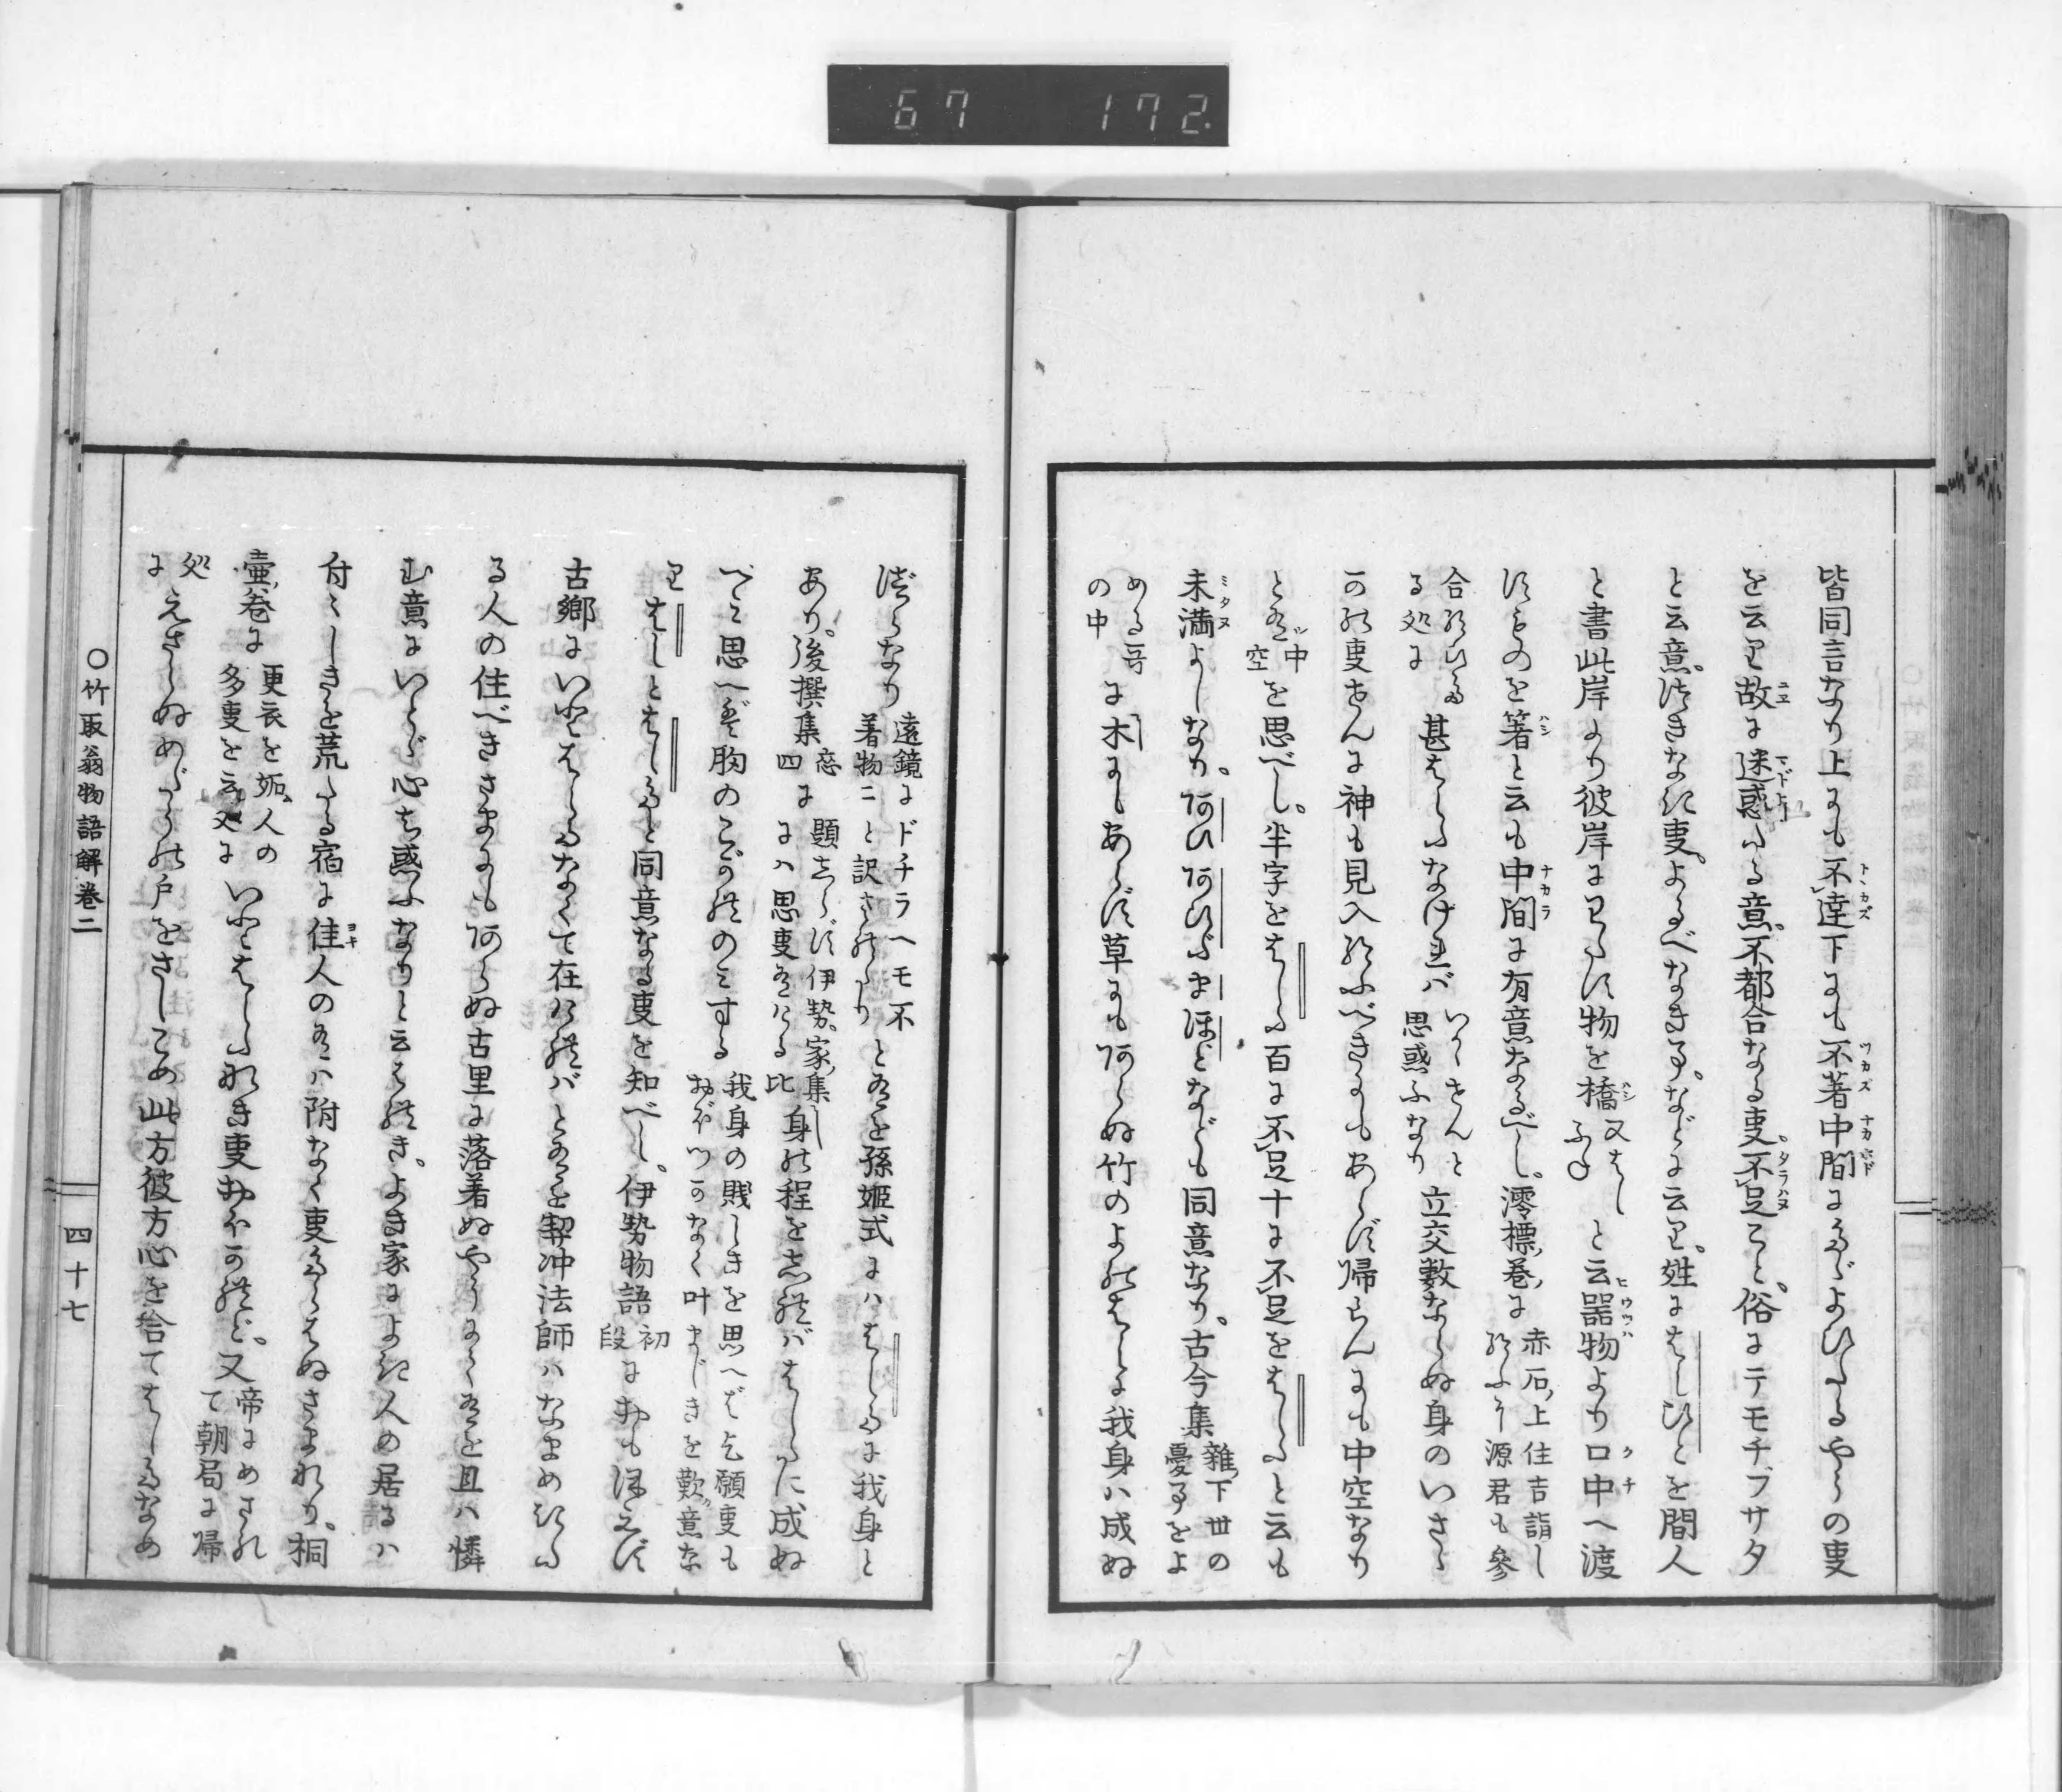 67 172.
皆同言なり上にも不達下にも不著中間にたゞよひたるやうの叓
を云り故に迷惑する意不都合なる叓不足こと俗にテモチブサタ
と云意つきなき叓よるべなき事などに云り姓にはしひとを間人
と書此岸より彼岸にわたす物を橋又はしふねと云器物より口中へ渡
すものを箸と云も中間に有意なるべし澪標巻に赤石上住吉詣し給ふ源君も参
合給ひたる処に甚はしたなければいかさんと思惑ふなり立交数ならぬ身のいさゝ
かの叓せんに神も見入給ふべきにもあらず帰らんにも中空なり
と有中空を思べし半字をはした百に不足十に不足をはしたと云も
未満よしなり何ひ何ひぶまほどなども同意なり古今集雑下世の憂事をよ
める哥の中に木にもあらず草にも何らぬ竹のよのはしに我身ハ成ぬ
づらなり遠鏡にドチラヘモ不着物ニと訳されたりと有を孫姫式にハはしたに我身と
あり後撰集恋四に題しらず伊勢家集にハ思叓有ける比身の程を志れバはしたに成ぬ
べみ思へど胸のこがれのみする我身の賎しきを思へば乞願叓もおぼつかなく叶まじきを歎意な
りはしとはしたと同意なる叓を知べし伊勢物語初段におもほえず
古郷にいとはしたなくて在けれバとあるを契冲法師ハなまめきたる
る人の住べきさまにも何らぬ古里に落着ぬやうにて有を且ハ憐
む意にいとゞ心ち惑ふなりと云はれきよき家によき人の居るハ
付〻しきを荒たる宿に佳人の有ハ附なく叓たらはぬさまなり桐
壷巻に更衣を妬人の多叓を云処にいとはしたなき叓おほかれど又帝にめされて朝局に帰
処にえさらぬめだうの戸をさしこめ此方彼方心を合てはしたなめ
〇竹取翁物語解巻二
四十七